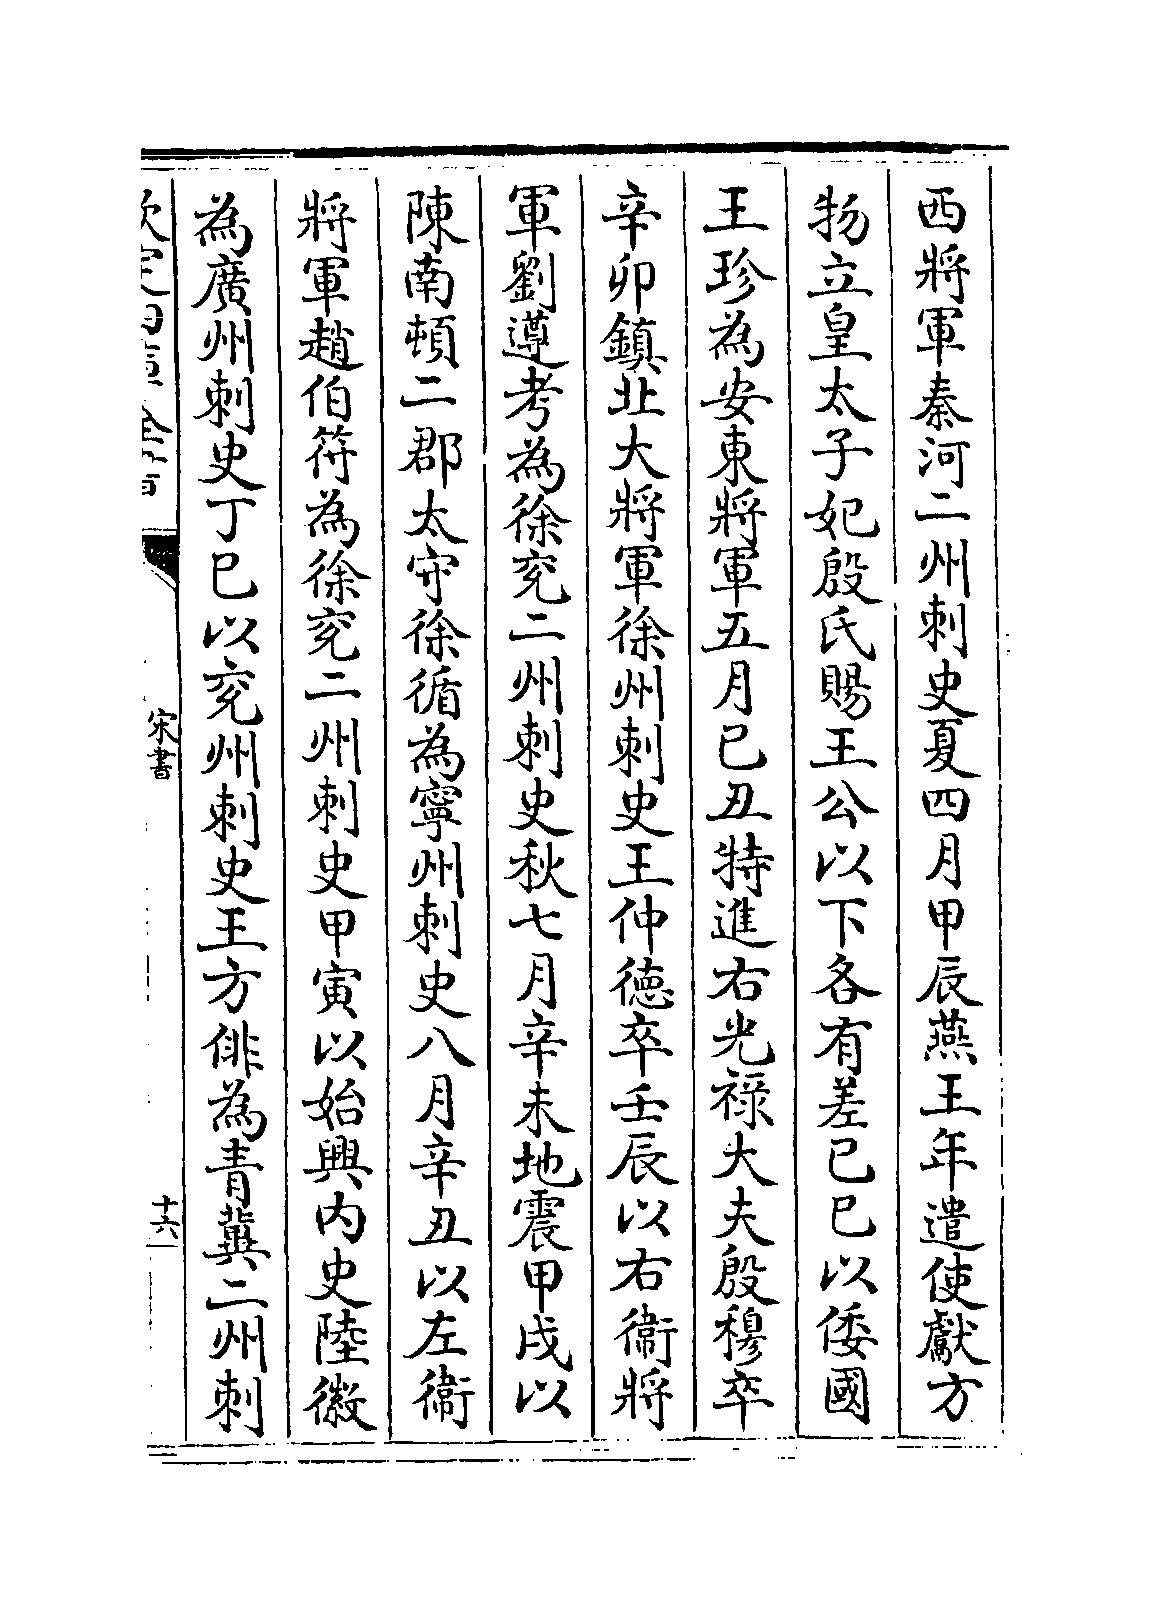 西將軍秦河二州刺史夏四月甲辰燕王年遣使獻方
物立皇太子妃殷氏賜王公以下各有差已巳以倭國
王珍為安東將軍五月已丑特進右光祿大夫殷穆卒
辛卯鎮北大將軍徐州刺史王仲德卒壬辰以右衞將
軍劉遵考為徐兖二州刺史秋七月辛未地震甲戌以
陳南頓二郡太守徐循為寧州刺史八月辛丑以左衞
將軍趙伯符為徐兖二州刺史甲寅以始興内史陸徽
為廣州刺史丁巳以兖州刺史王方俳為青冀二州刺
欽定四庫全書
宋書
十六